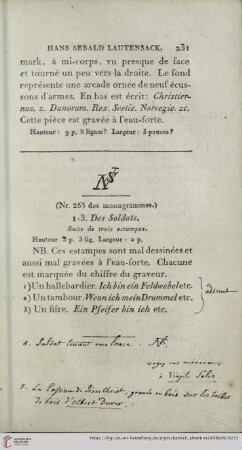 HANS SEBALD LAUTENSACK. 231
mark, à mi-corps, vu presque de face
et tourné un peu vers la droite. Le fond
représente une arcade ornée de neuf écus-
sons d'armes. En bas est écrit: Christier-
nus. 2. Danorum. Rex. Svetie. Norvegie. 2c.
Cette pièce est gravée à l'eau-forte.
Hauteur: 9 p. 8 lignes? Largeur: 5 pouces?
(Nr. 263 des monogrammes.)
1-3. Des Soldats.
Suite de trois estampes.
Hauteur 3 p. 3 lig. Largeur: 2 p.
NB. Ces estampes sont mal dessinées et
aussi mal gravées à l'eau-forte. Chacune
est marquée du chiffre du graveur.
1) Un hallebardier. Ich bin ein Feldwebel etc.
2) Un tambour. Wenn ich mein Drummel etc.
3) Un fifre. Ein Pfeifer bin ich etc.
4. Soldat tenant une lance.
à Virgile Solis.
5. La Passion de Jesus Christ, gravée en bois sur les tailles
de bois d'Albert Durer